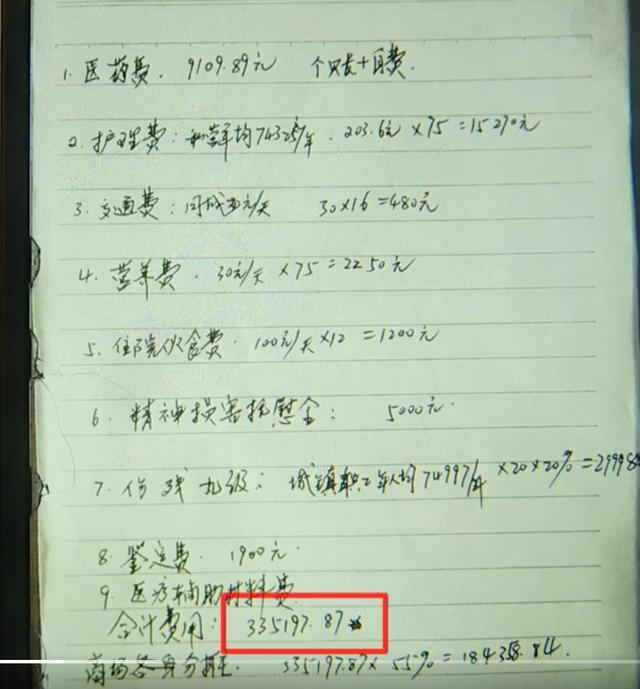 1. 医药费. 9109.89元 个人支+自费.
2. 护理费: 年均74325/年. 203.6元 ×75 =15270元
3. 交通费: 同城30元/天 30×16=480元
4. 营养费. 30元/天 ×75 =2250元
5. 住院伙食费. 100元/天×12 =1200元
6. 精神损害抚慰金: 5000元.
7. 伤残九级: 城镇职工年人均74997/年 ×20×20%=29998
8. 鉴定费. 1900元.
9. 医疗辅助材料费
合计费用: 335197.87
商场各身分担: 335197.87× 55%=184358.84.